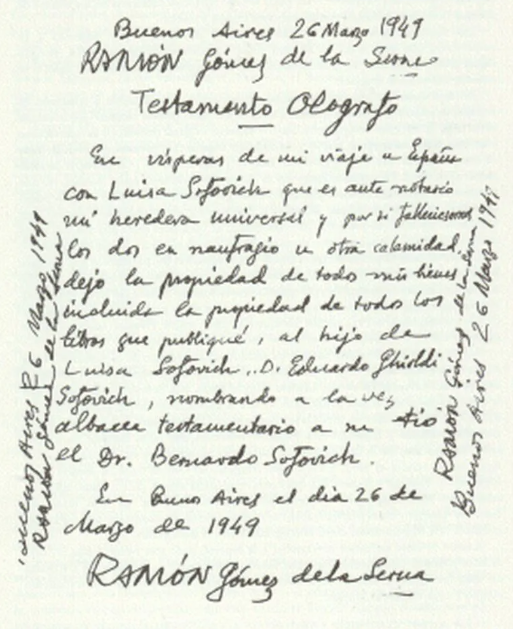 Buenos Aires 26 Marzo 1949
RAMÓN Gómez de la Serna
Testamento Ologrofo
En vísperas de mi viaje a España
con Luisa Sofovich que es ante notario
mi heredera universal y por si falleciesemos
los dos en naufragio u otra calamidad,
dejo la propiedad de todos mis bienes
incluida la propiedad de todos los
libros que publiqué, al hijo de
Luisa Sofovich, D. Eduardo Ghioldi
Sofovich, nombrando a la vez
albacea testamentario a su tío
el Dr. Bernardo Sofovich.
En Buenos Aires el dia 26 de
Marzo de 1949
RAMÓN Gómez de la Serna
Buenos Aires 26 Marzo 1949
RAMÓN Gómez de la Serna
RAMÓN Gómez de la Serna
Buenos Aires 26 Marzo 1949